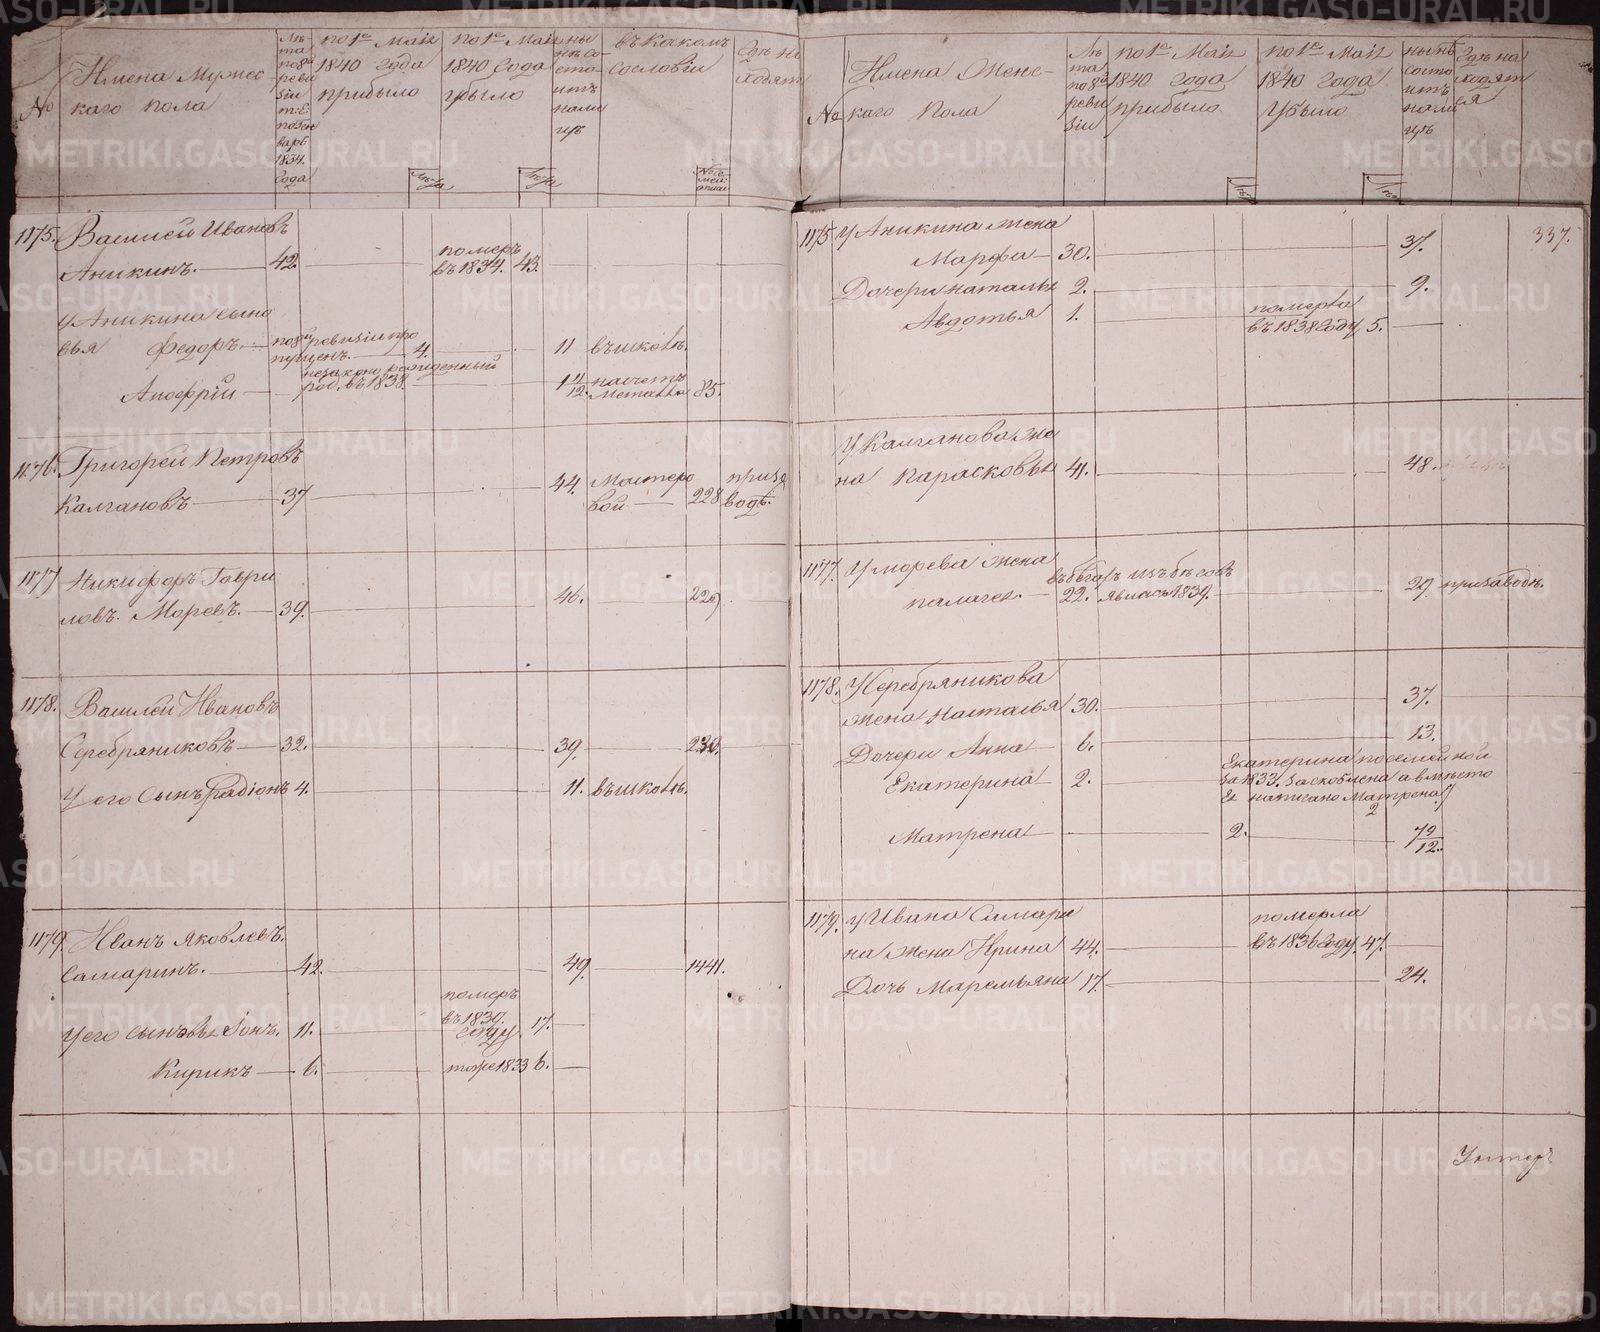 №
Имена Мужес
каго пола
Лѣ
та
по 8й
реви
зіи
1834.
Года
по 1е Маія
1840 года
прибыло
по 1е Маія
1840 года
убыло
ны
нѣ со
сто
итъ
нали
цѣ
въ какомъ
сословіи
Гдѣ на
ходят
лѣта
лѣта
1175. Василей Ивановъ
Аникинъ. 42. померъ
въ 1834. 43.
у Аникина сыно
вья Федоръ. по 8й ревизіи про
пущенъ. 4. 11 въ школѣ.
незаконорожденный
Анофрій род. въ 1838 1 11/12. на счетъ
Мета 85.
1176. Григорей Петровъ
Калгановъ 37 44. Мастеро
вой 228 при за
водѣ.
1177 Никифоръ Гаври
ловъ. Моревъ. 39. 46. 229
1178. Василей Ивановъ
Серебряниковъ 32. 39. 230.
У его Сынъ Радіонъ 4. 11. въ школѣ.
1179. Иванъ Яковлевъ.
Самаринъ. 42. 49. 1441.
у его сыновья Іонъ. 11. померъ
въ 1839.
году 17.
Кирикъ 6. тоже 1833 6.
№
Имена Женс-
каго Пола
Лѣ
та
по 8й
реви
зіи
по 1е Маія
1840 года
прибыло
по 1е Маія
1840 года
Убыло
нынѣ
состо
итъ
нали
цѣ
Гдѣ на
ходят
ся
337.
1175 у Аникина жена
Марфа 30. 37.
Дочери наталья 2. 9.
Авдотья 1. померла
въ 1838 году 5.
У Калганова же
на Парасковья 41. 48.
1177. У морева жена
пелагея. 22. въ бѣгахъ изъ бѣговъ
явилась 1839. 29 при заводѣ.
1178. У Серебряникова
жена Наталья 30. 37.
Дочери Анна 6. 13.
Екатерина 2. Екатерина по семейной
за 1833. заскоблена а вместо
Ея написано Матрена
2
Матрена 2. 7 9/12.
1179. у Ивана Самари
на жена Ирина 44. померла
въ 1836 году. 47.
Дочь Маремьяна 17. 24.
METRIKI.GASO-URAL.RU